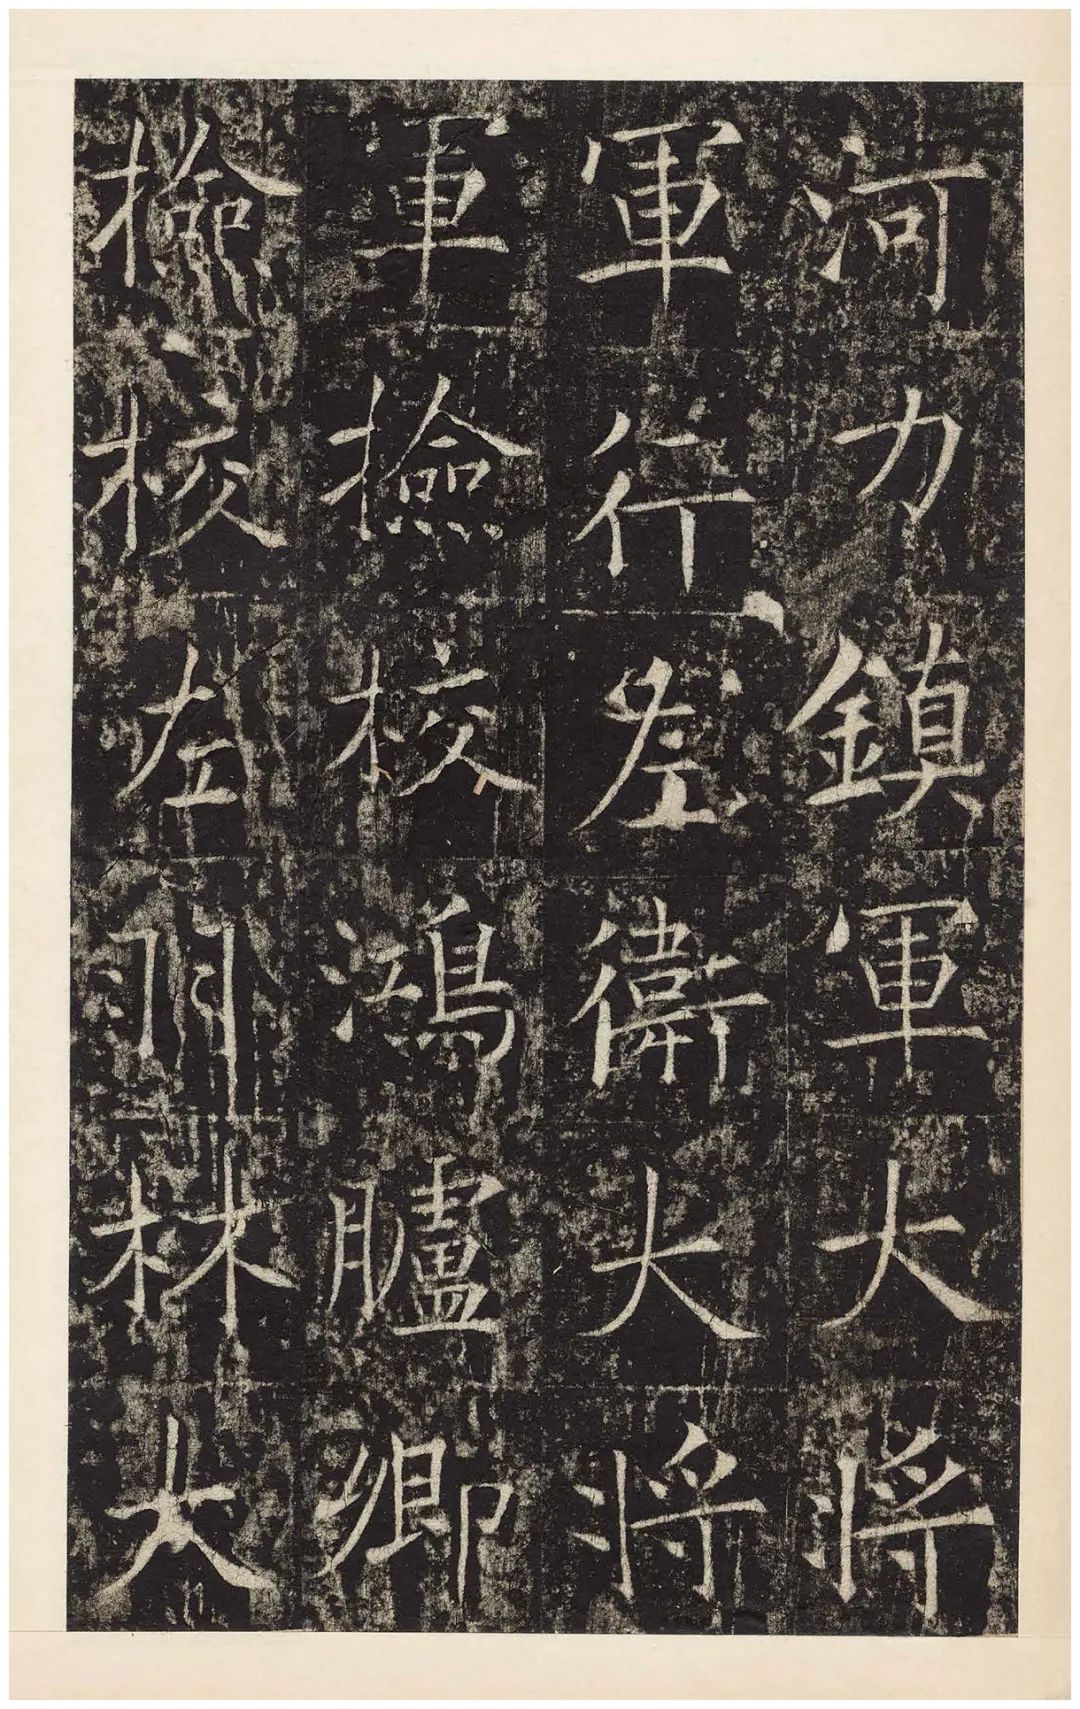 河力鎮軍大將
軍行左衛大將
軍檢校鴻臚卿
檢校左羽林大